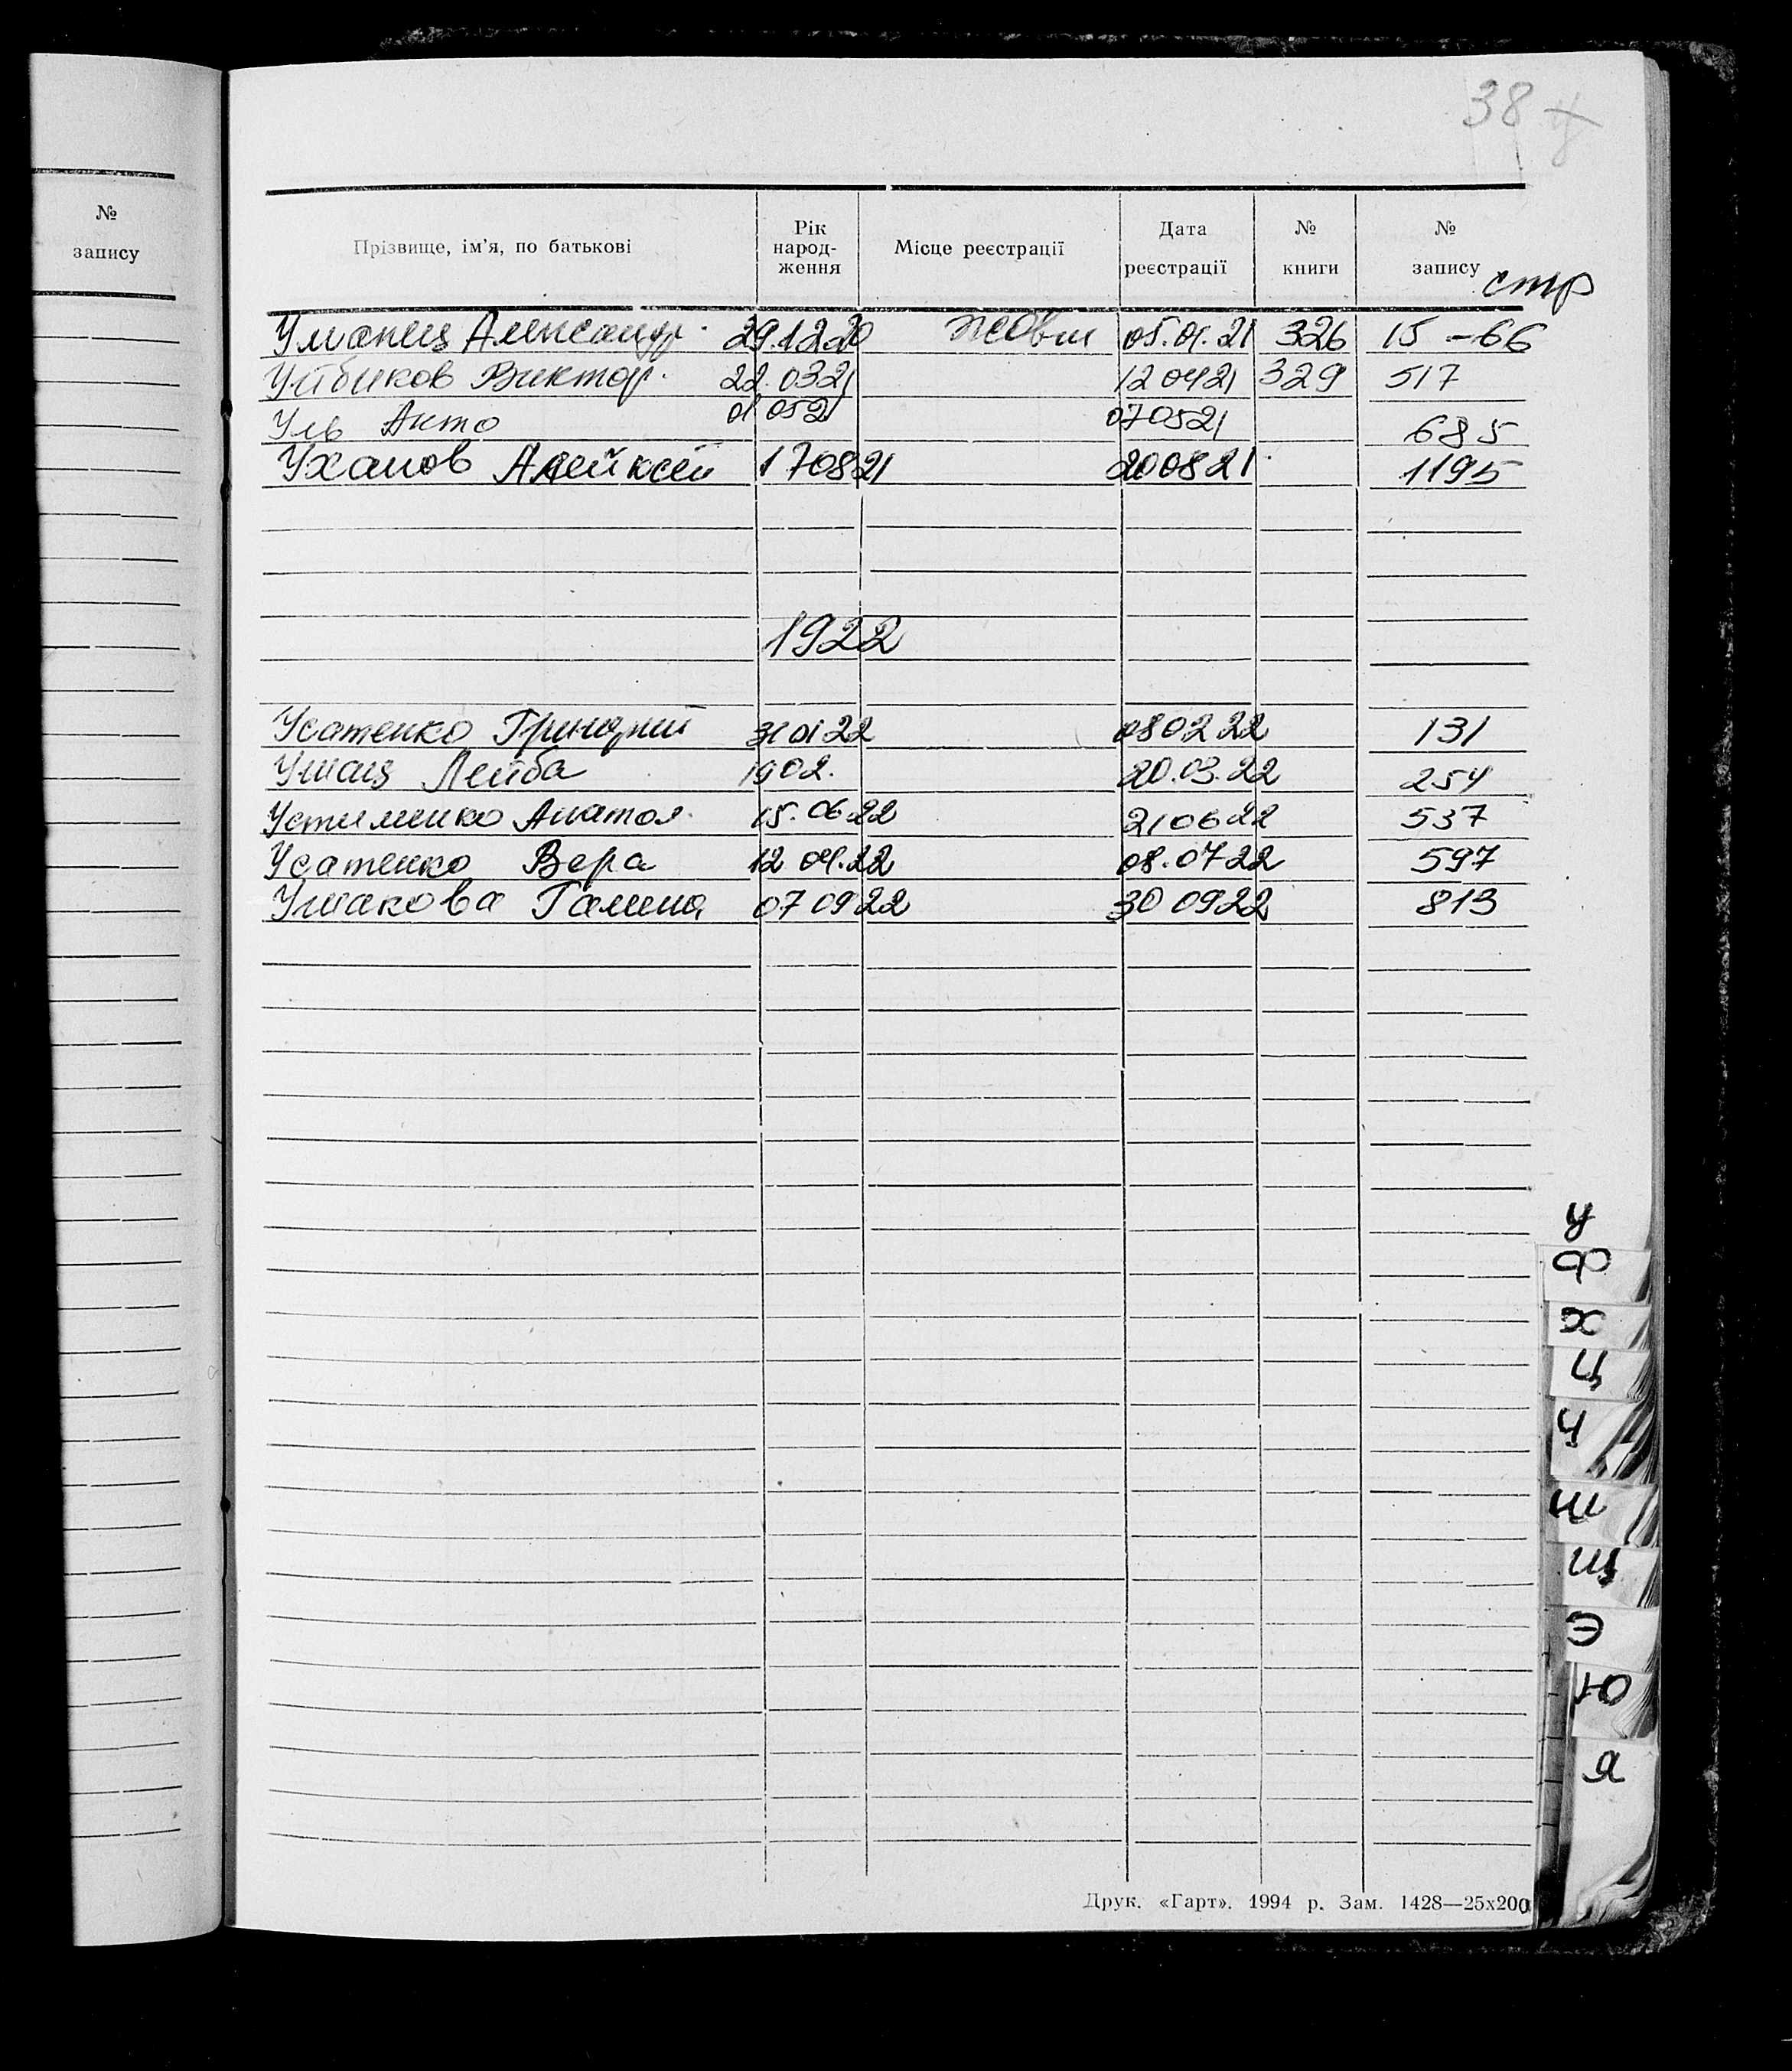 38 у
№
запису
Прізвище, ім'я, по батькові
Рік
народ-
ження
Місце реєстрації
Дата
реєстрації
№
книги
№
запису
стр
Уманец Александр. 29.12.20 Жовт 05.01.21 326 15 - 66
Виктор. 22.0321 120421 329 517
Уль Анто 01 0521 070521 685
Уханов Алейксей 170821 200821 1195
1922
Усатенко Григорий 310122 080222 131
Лейба 1902. 20.03.22 254
Устименко Анатол. 15.0622 210622 537
Усатенко Вера 12 04.22 08.0722 597
Ушакова Галина 070922 300922 813
у
Ф
х
Ц
Ч
Ш
Щ
Э
Ю
Я
Друк. «Гарт». 1994 р. Зам. 1428—25х200